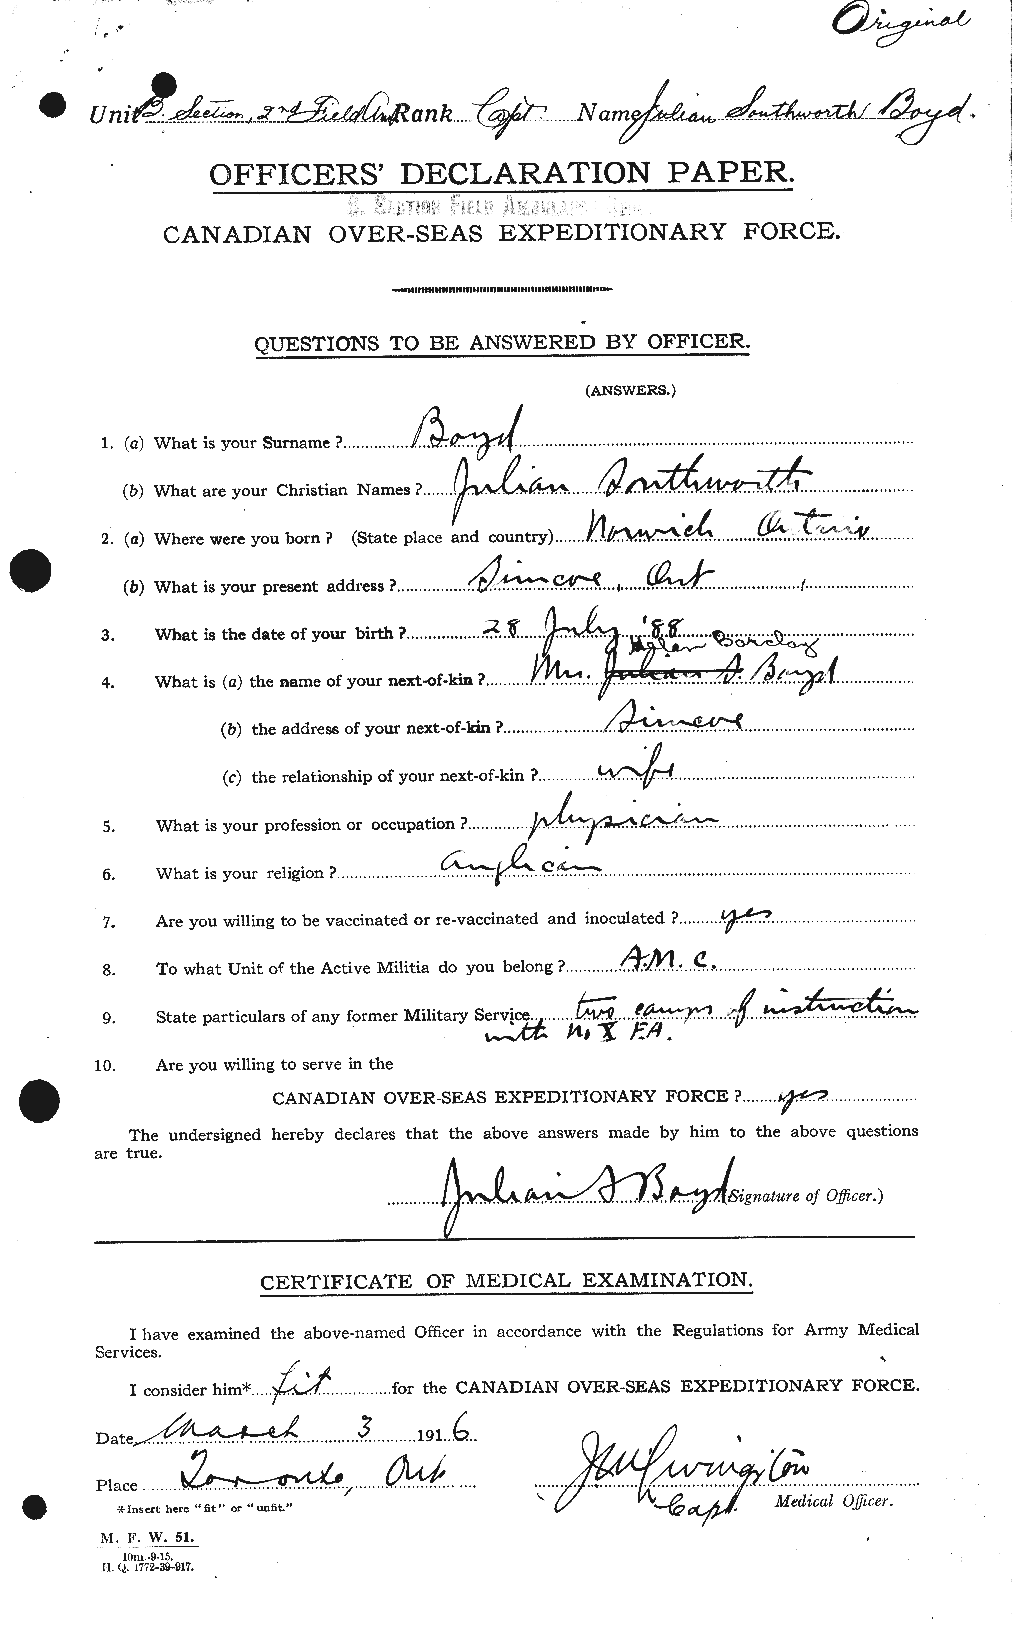 Original
Unit B. Section, 2nd Field Amb Rank Capt. Name Julian Southworth Boyd.
OFFICERS' DECLARATION PAPER.
CANADIAN OVER-SEAS EXPEDITIONARY FORCE.
QUESTIONS TO BE ANSWERED BY OFFICER.
(ANSWERS.)
1. (a) What is your Surname ? Boyd
(b) What are your Christian Names ? Julian Southworth
2. (a) Where were you born ? (State place and country) Norwich Ontario
(b) What is your present address ? Simcoe, Ont
3. What is the date of your birth ? 28 July '88
Helen Barclay
4. What is (a) the name of your next-of-kin ? Mrs. Julian S. Boyd
(b) the address of your next-of-kin ? Simcoe
(c) the relationship of your next-of-kin ? wife
5. What is your profession or occupation ? physician
6. What is your religion ? Anglican
7. Are you willing to be vaccinated or re-vaccinated and inoculated ? yes
8. To what Unit of the Active Militia do you belong ? A.M.C.
9. State particulars of any former Military Service two camps of instruction
with No X F.A.
10. Are you willing to serve in the
CANADIAN OVER-SEAS EXPEDITIONARY FORCE ? yes
The undersigned hereby declares that the above answers made by him to the above questions
are true.
Julian S Boyd (Signature of Officer.)
CERTIFICATE OF MEDICAL EXAMINATION.
I have examined the above-named Officer in accordance with the Regulations for Army Medical
Services.
I consider him* fit for the CANADIAN OVER-SEAS EXPEDITIONARY FORCE.
Date March 3 1916
Place Toronto, Ont
Livingston
Capt. Medical Officer.
*Insert here "fit" or "unfit."
M. F. W. 51.
10m.-9-15.
H. Q. 1772-39-917.